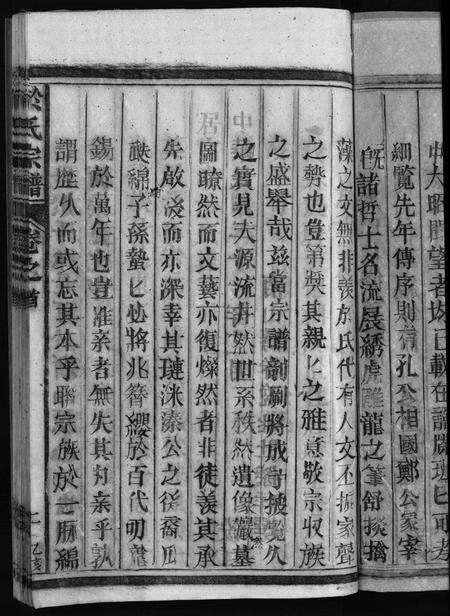 中大昭聞望者均已載在譜牒班匕可考
細覧先年傳序則有孔公相國鄭公冢宰
既諸哲士名流展綉虎雕龍之筆舒掞擒
藻之文無非羨於氏代有人文丕振家聲
之勢也豈第獎其親匕之雅意敬宗収族
之盛舉哉兹當宗譜剞劂將成予披覧久
之實見夫源流井然世系秩然遺像儼然墓
居圖瞭然而文藝亦復燦然者非徒羨其承
先啟後而亦深幸其璉洙溱公之後裔瓜
瓞綿匕子孫蟄匕必將兆簪纓於百代叨寵
錫於萬年也豈惟親者無失其為親乎孰
謂歷久而或忘其本乎聯宗族於一脉綿
於氏宗譜
卷之首
二
乙亥